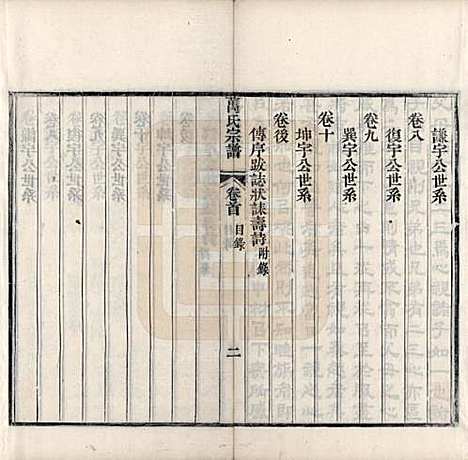 謙宇公世系
卷八
復宇公世系
卷九
巽宇公世系
卷十
坤宇公世系
卷後
傳序跋誌狀誄壽詩附錄
萬氏宗譜
卷首
目錄
二